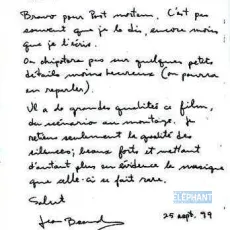 Bravo pour Post mortem. C'est peu
souvent que je le dis, encore moins
que je l'écris.
On chipotera pas sur quelques petits
détails moins heureux (on pourra
en reparler).
Il a de grandes qualités ce film,
du scénario au montage. Je
retiens seulement la qualité des
silences; beaux forts et mettant
d'autant plus en évidence la musique
que celle-ci se fait rare.
Salut
ÉLÉPHANT
Jean
25 sept. 99